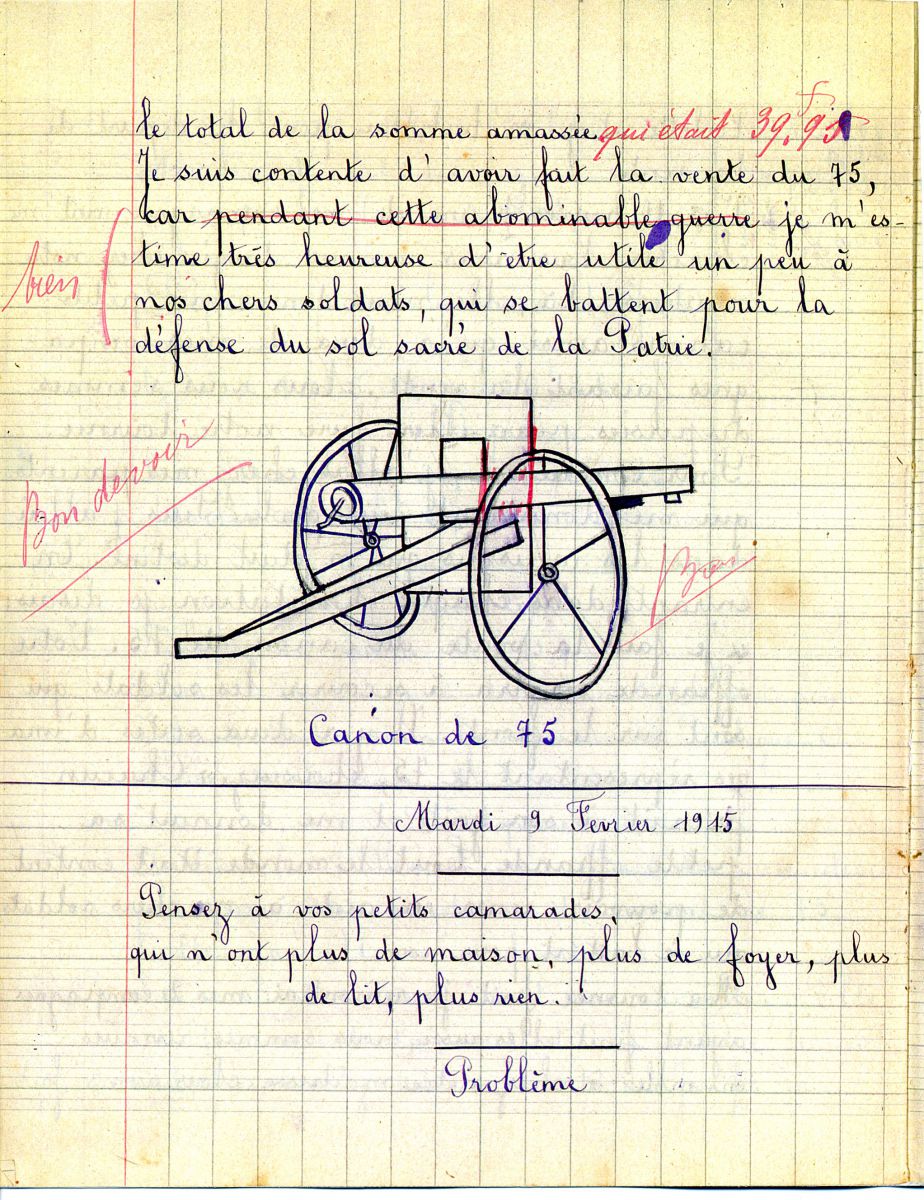 le total de la somme amassée qui était 39,95 f
Je suis contente d'avoir fait la vente du 75,
car pendant cette abominable guerre je m'es-
time très heureuse d'etre utile un peu à
bien
nos chers soldats, qui se battent pour la
défense du sol sacré de la Patrie.
Bon devoir
Bon
Canon de 75
Mardi 9 Fevrier 1915
Pensez à vos petits camarades,
qui n'ont plus de maison, plus de foyer, plus
de lit, plus rien.
Problème